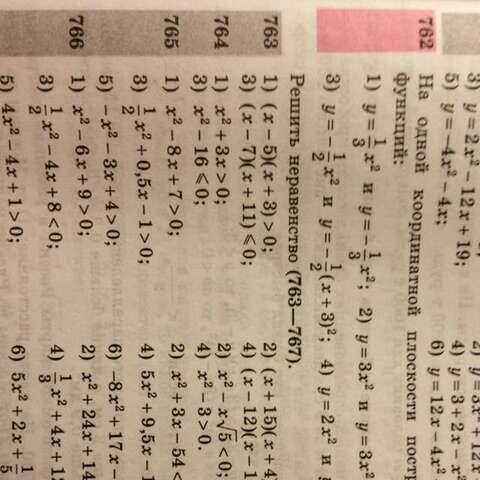 3) y=2x²−12x+19; 2) y=3x²+12x
5) y=−4x²−4x; 4) y=3+2x−x²
6) y=12x−4x²
762 На одной координатной плоскости
функций:
1) y=1/3x² и y=−1/3x²; 2) y=3x² и y=3x²
3) y=−1/2x² и y=−1/2(x+3)²; 4) y=2x² и
Решить неравенство (763—767).
763 1) (x−5)(x+3)>0; 2) (x+15)(x+4)
3) (x−7)(x+11)⩽0; 4) (x−12)(x−1
764 1) x²+3x>0; 2) x²−x√5<0;
3) x²−16⩽0; 4) x²−3>0.
765 1) x²−8x+7>0; 2) x²+3x−54<
3) 1/2x²+0,5x−1>0; 4) 5x²+9,5x−1
5) −x²−3x+4>0; 6) −8x²+17x−
766 1) x²−6x+9>0; 2) x²+24x+14
3) 1/2x²−4x+8<0; 4) 1/3x²+4x+12
5) 4x²−4x+1>0; 6) 5x²+2x+1/5